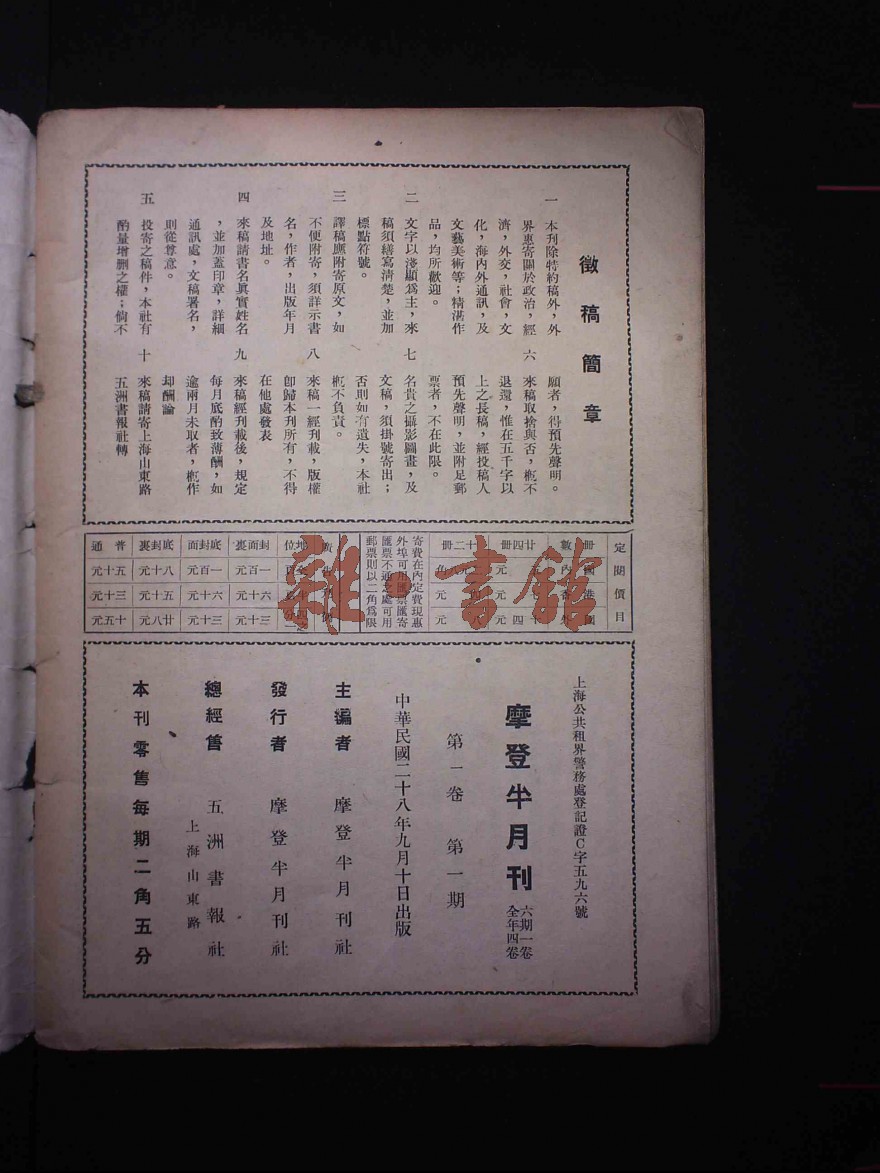 徵稿簡章
一 本刊除特約稿外，外
界惠寄關於政治，經
濟，外交，社會，文
化，海內外通訊，及
文藝美術等；精湛作
品，均所歡迎。
二 文字以淺顯爲主，來
稿須繕寫清楚，並加
標點符號。
三 譯稿應附寄原文，如
不便附寄，須詳示書
名，作者，出版年月
及地址。
四 來稿請書名眞實姓名
，並加蓋印章，詳細
通訊處，文稿署名，
則從尊意。
五 投寄之稿件，本社有
酌量增删之權；倘不
願者，得預先聲明。
六 來稿取捨與否，概不
退還，惟在五千字以
上之長稿，經投稿人
預先聲明，並附足郵
票者，不在此限。
七 名貴之攝影圖畫，及
文稿，須掛號寄出；
否則如有遺失，本社
概不負責。
八 來稿一經刊載，版權
卽歸本刊所有，不得
在他處發表
九 來稿經刊載後，規定
每月底酌致薄酬，如
逾兩月未取者，概作
却酬論
十 來稿請寄上海山東路
五洲書報社轉
定閱價目
册數
廿四册
十二册
寄費在內定費現惠
外埠可用匯票匯寄
匯票不通之處可用
郵票則以二角爲限
封面裏 一百元 六十元 三十元
底封面 一百元 六十元 三十元
底封裏 八十元 五十元 廿八元
普通 五十元 三十元 十五元
雜·書館
上海公共租界警務處登記證C字五九六號
摩登半月刊
六期一卷
全年四卷
第一卷 第一期
中華民國二十八年九月十日出版
主編者 摩登半月刊社
發行者 摩登半月刊社
總經售 五洲書報社
上海山東路
本刊零售每期二角五分